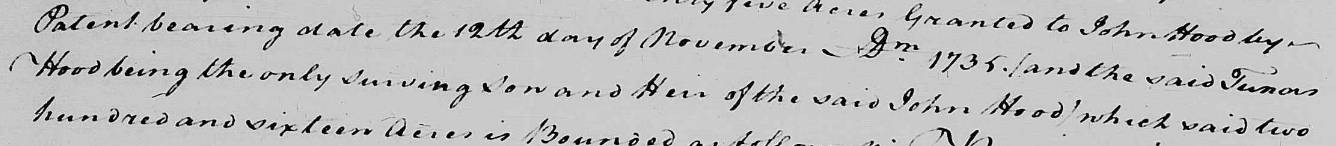 five Acres Granted to John Hood by
Patent bearing date the 12th day of November Dm. 1735. (and the said Tunas
Hood being the only surving Son and Heir of the said John Hood) which said two
hundred and sixteen Acres is Bounded as